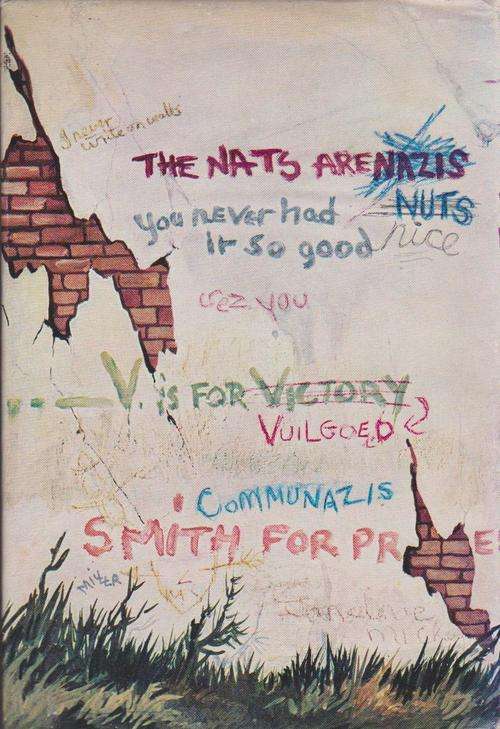 I never
write on walls
THE NATS ARE NAZIS
NUTS
you never had
it so good
nice
sez you
...— V. is FOR VICTORY
VUILGOED
COMMUNAZIS
SMITH FOR PR E